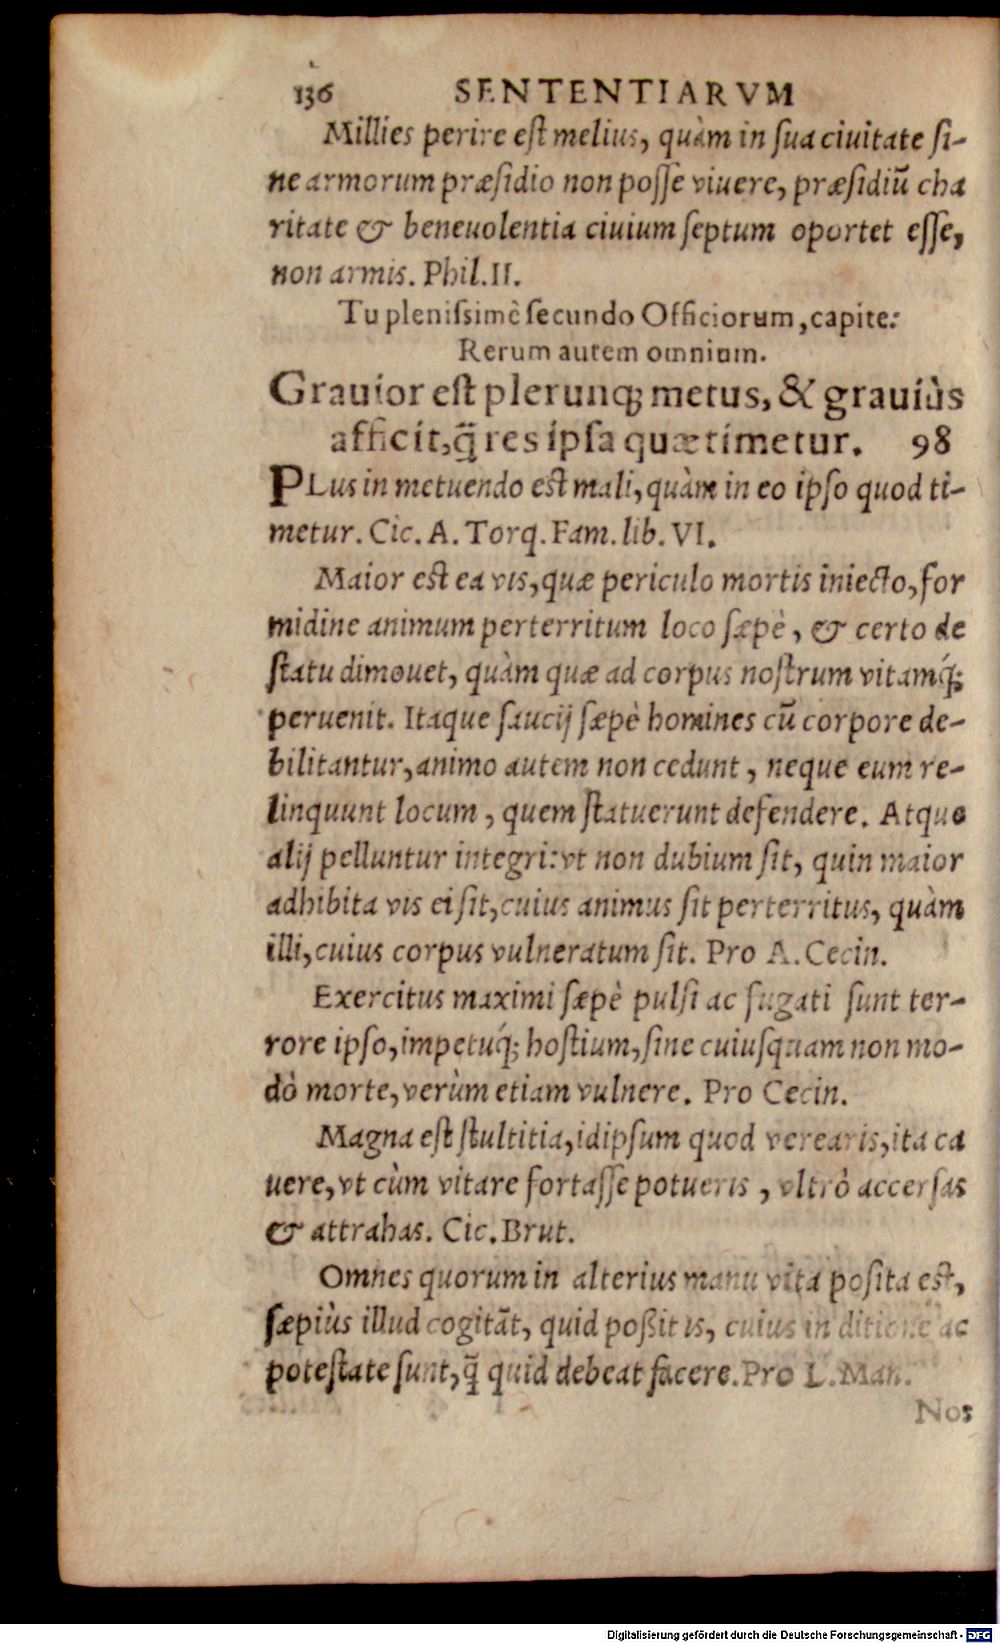 136 SENTENTIARVM
Millies perire eſt melius, quàm in ſua ciuitate ſi-
ne armorum præſidio non poſſe viuere, præſidiū cha
ritate & beneuolentia ciuium ſeptum oportet eſſe,
non armis. Phil.II.
Tu pleniſsimè ſecundo Officiorum, capite:
Rerum autem omnium.
Grauior eſt plerunq; metus, & grauiùs
afficit, q̃ res ipſa quæ timetur. 98
PLus in metuendo eſt mali, quàm in eo ipſo quod ti-
metur. Cic. A. Torq. Fam. lib. VI.
Maior eſt ea vis, quæ periculo mortis iniecto, for
midine animum perterritum loco ſæpè, & certo de
ſtatu dimouet, quàm quæ ad corpus noſtrum vitamq́;
peruenit. Itaque ſaucij ſæpè homines cū corpore de-
bilitantur, animo autem non cedunt, neque eum re-
linquunt locum, quem ſtatuerunt defendere. Atque
alij pelluntur integri: vt non dubium ſit, quin maior
adhibita vis ei ſit, cuius animus ſit perterritus, quàm
illi, cuius corpus vulneratum ſit. Pro A. Cecin.
Exercitus maximi ſæpè pulſi ac fugati ſunt ter-
rore ipſo, impetuq́; hoſtium, ſine cuiuſquam non mo-
dò morte, verùm etiam vulnere. Pro Cecin.
Magna eſt ſtultitia, id ipſum quod verearis, ita ca
uere, vt cùm vitare fortaſſe potueris, vltrò accerſas
& attrahas. Cic. Brut.
Omnes quorum in alterius manu vita poſita eſt,
ſæpiùs illud cogitāt, quid poßit is, cuius in ditione ac
poteſtate ſunt, q̃ quid debeat facere. Pro L. Man.
Nos
Digitalisierung gefördert durch die Deutsche Forschungsgemeinschaft - DFG